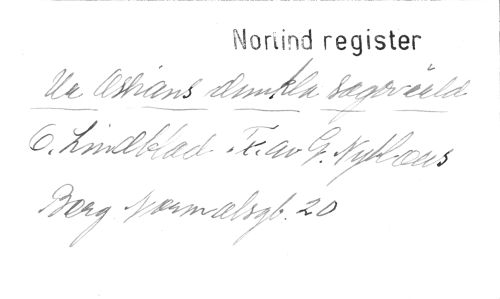 Norlind register
Ur Ossians dunkla sagovärld
O. Lindblad. Tx. av G. Nyblæus
Berg Normalsgb. 20